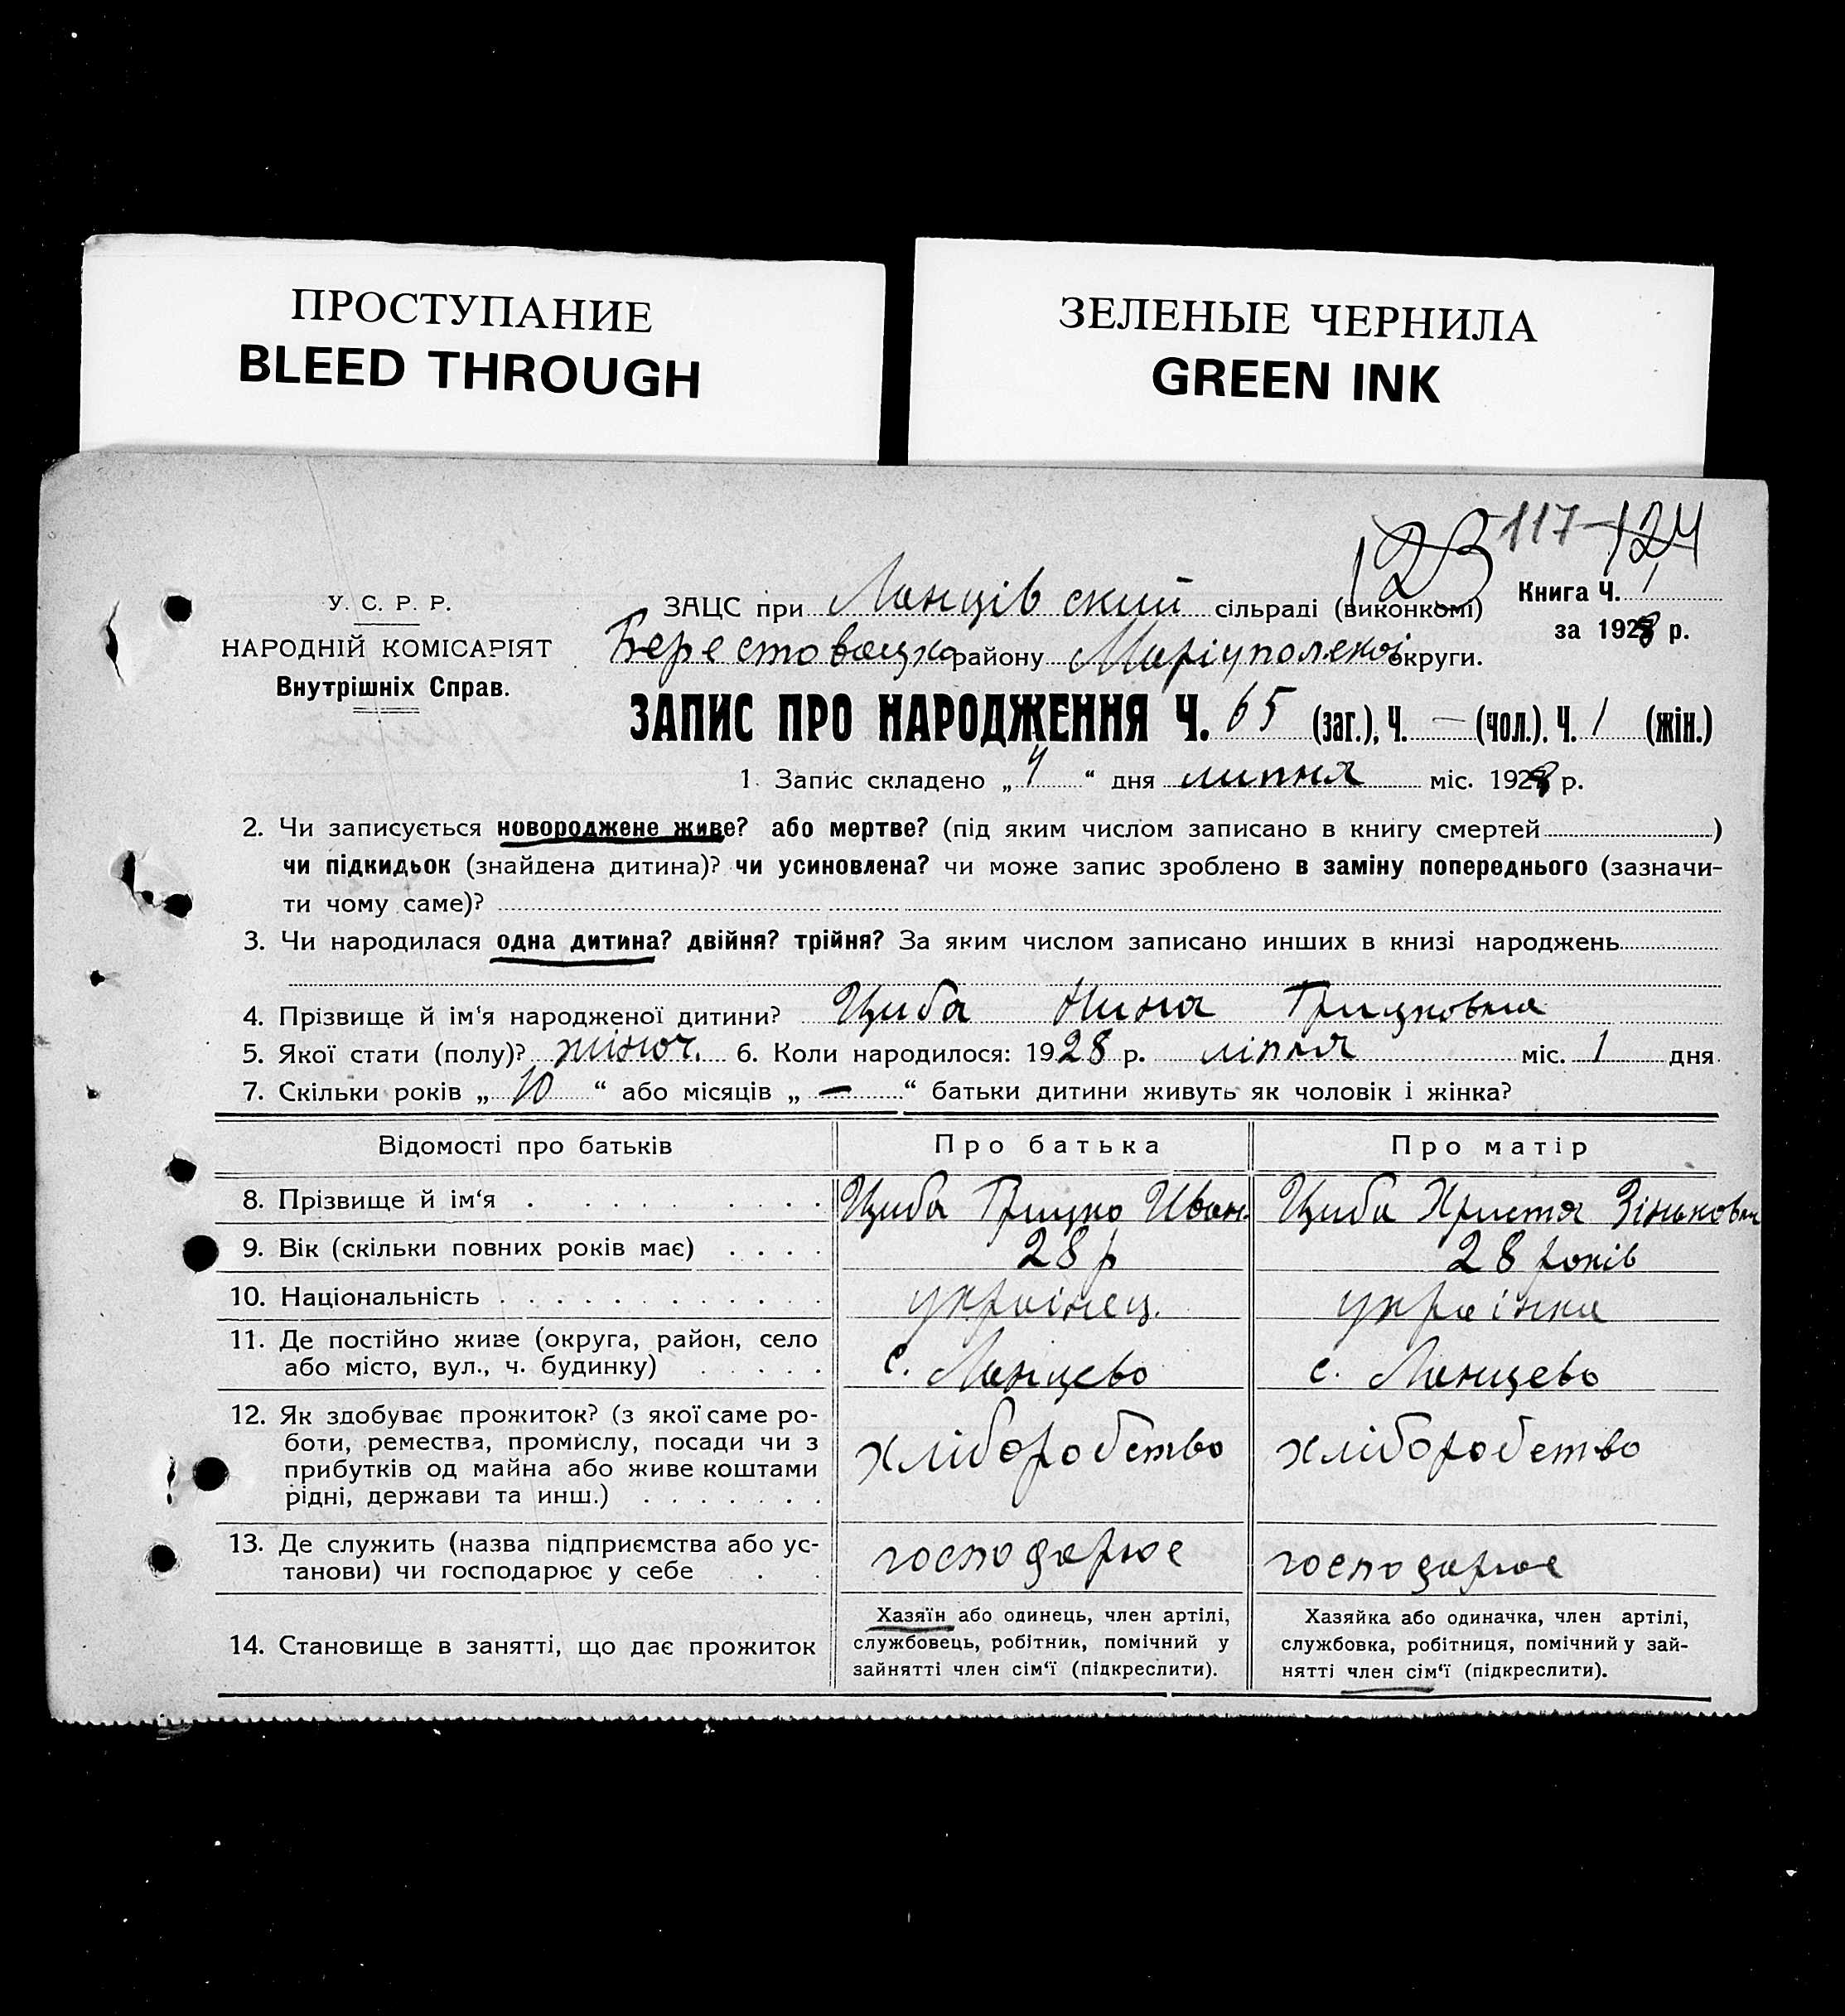 ПРОСТУПАНИЕ
BLEED THROUGH
ЗЕЛЕНЫЕ ЧЕРНИЛА
GREEN INK
123 117 124
У. С. Р. Р.
НАРОДНІЙ КОМІСАРІЯТ
Внутрішніх Справ.
Книга Ч. 1
за 1928 р.
ЗАЦС при Ланцівский сільраді (виконкомі)
Берестовецько району Маріупольскої округи.
ЗАПИС ПРО НАРОДЖЕННЯ Ч. 65 (заг.), Ч. — (чол.). Ч. 1 (жін.)
1. Запис складено „ 4 “ дня липня міс. 1928 р.
2. Чи записується новороджене живе? або мертве? (під яким числом записано в книгу смертей )
чи підкидьок (знайдена дитина)? чи усиновлена? чи може запис зроблено в заміну попереднього (зазначи-
ти чому саме)?
3. Чи народилася одна дитина? двійня? трійня? За яким числом записано инших в книзі народжень
4. Прізвище й ім‘я народженої дитини? Циба Нина Грицковна
5. Якої стати (полу)? жіноч. 6. Коли народилося: 1928 р. ліпля міс. 1 дня.
7. Скільки років „ 10 “ або місяців „ — “ батьки дитини живуть як чоловік і жінка?
Відомості про батьків Про батька Про матір
8. Прізвище й ім‘я Циба Грицко Иван. Циба Христя Зіньковна
9. Вік (скільки повних років має) 28 р 28 років
10. Національність українец. українка
11. Де постійно живе (округа, район, село
або місто, вул., ч. будинку) с. Ланцево с. Ланцево
12. Як здобуває прожиток? (з якої саме ро-
боти, ремества, промислу, посади чи з
прибутків од майна або живе коштами
рідні, держави та инш.)
хліборобство хліборобство
13. Де служить (назва підприємства або ус-
танови) чи господарює у себе
господарює господарює
14. Становище в занятті, що дає прожиток
Хазяїн або одинець, член артілі,
службовець, робітник, помічний у
зайнятті член сім‘ї (підкреслити).
Хазяйка або одиначка, член артілі,
службовка, робітниця, помічний у зай-
нятті член сім‘ї (підкреслити).